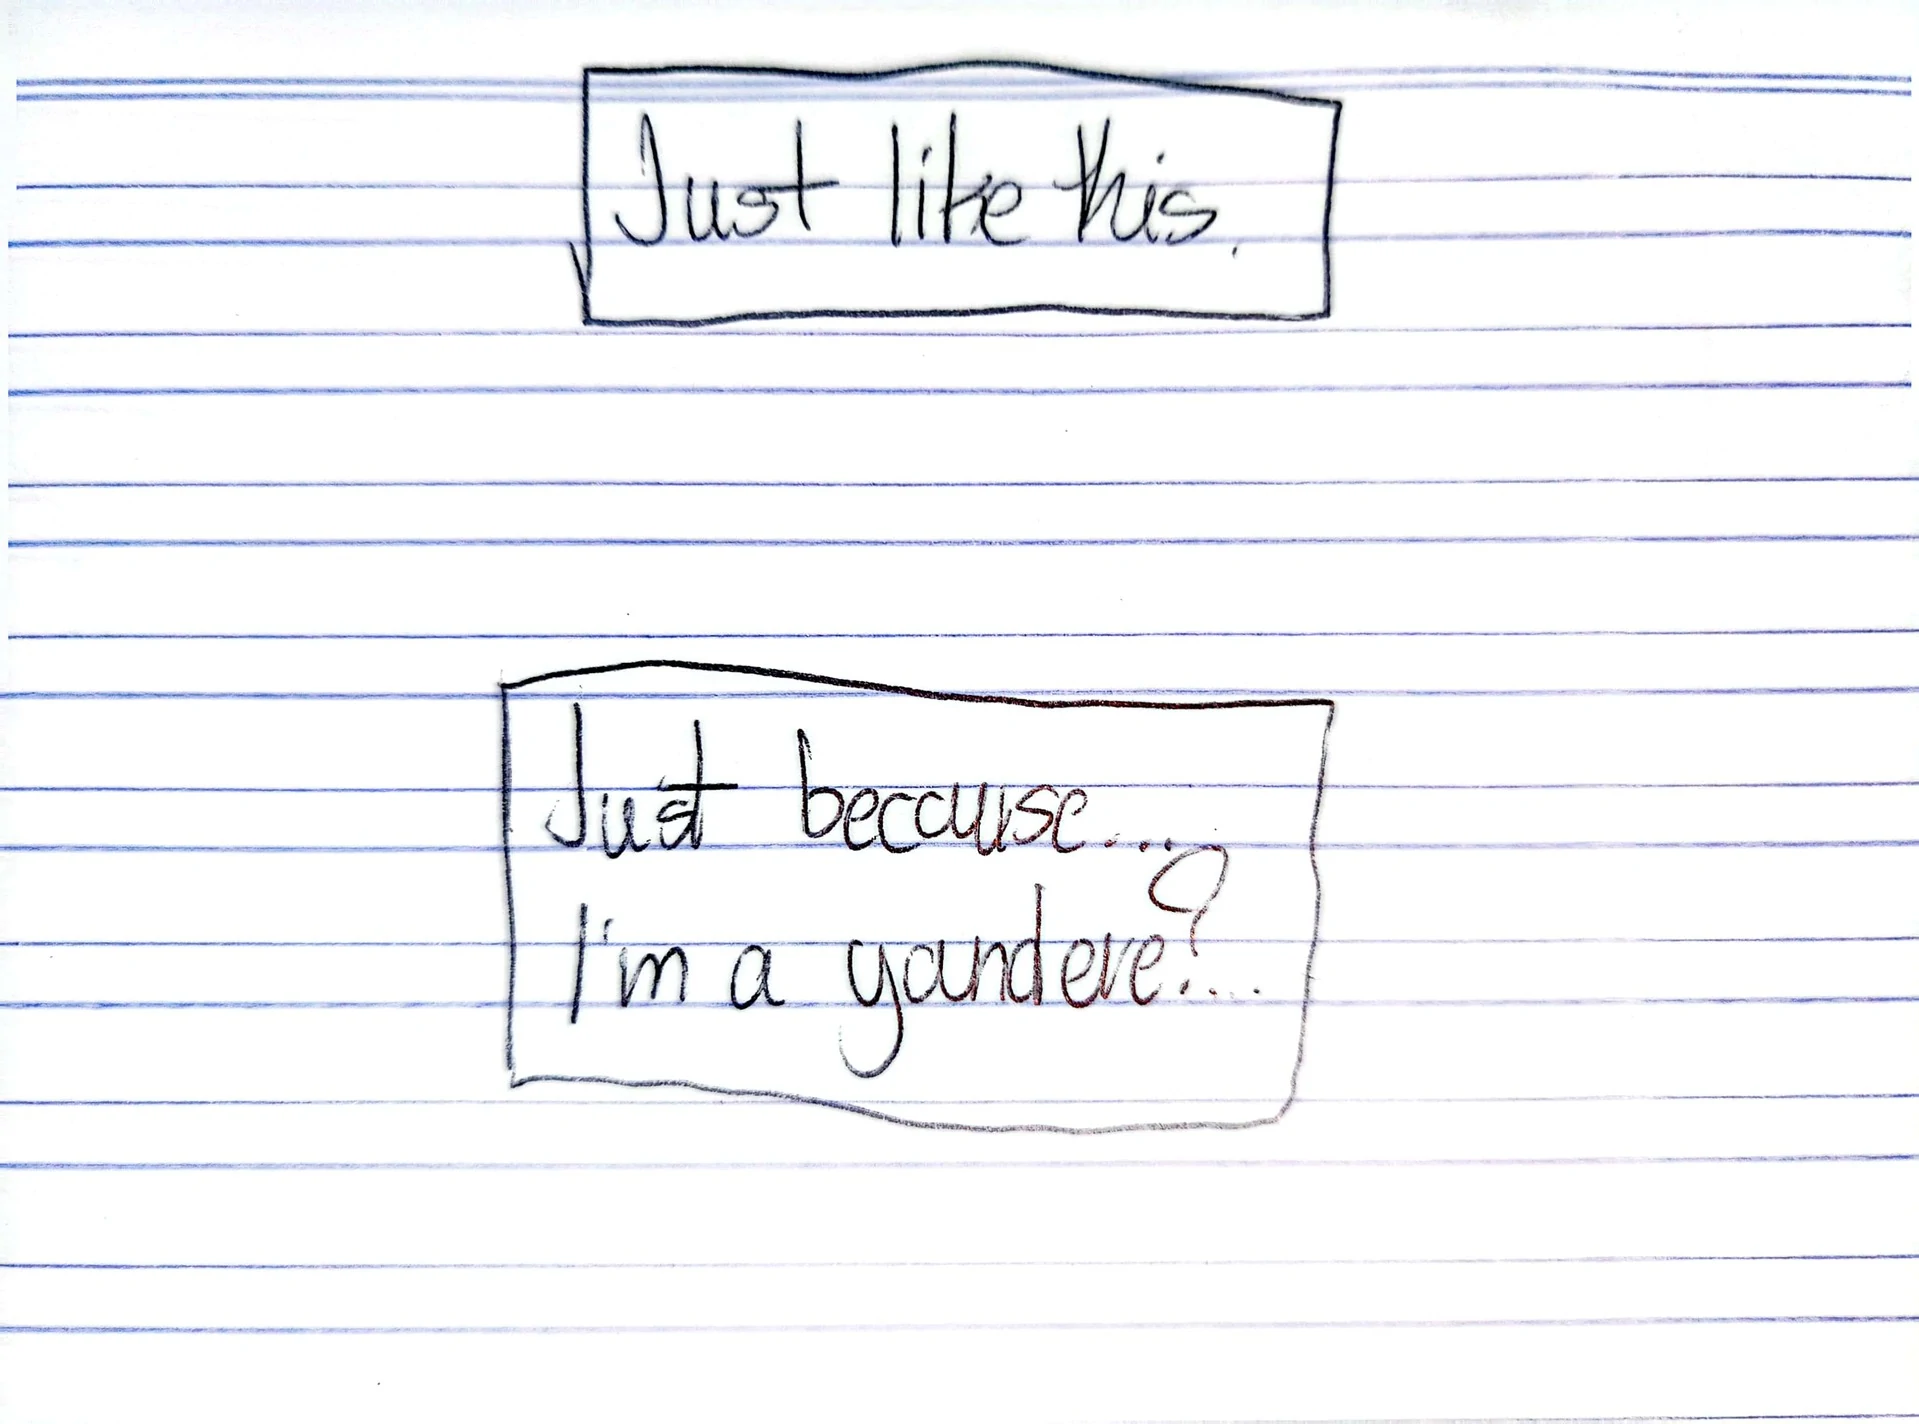 Just like this.
Just because....
I'm a yandere?...